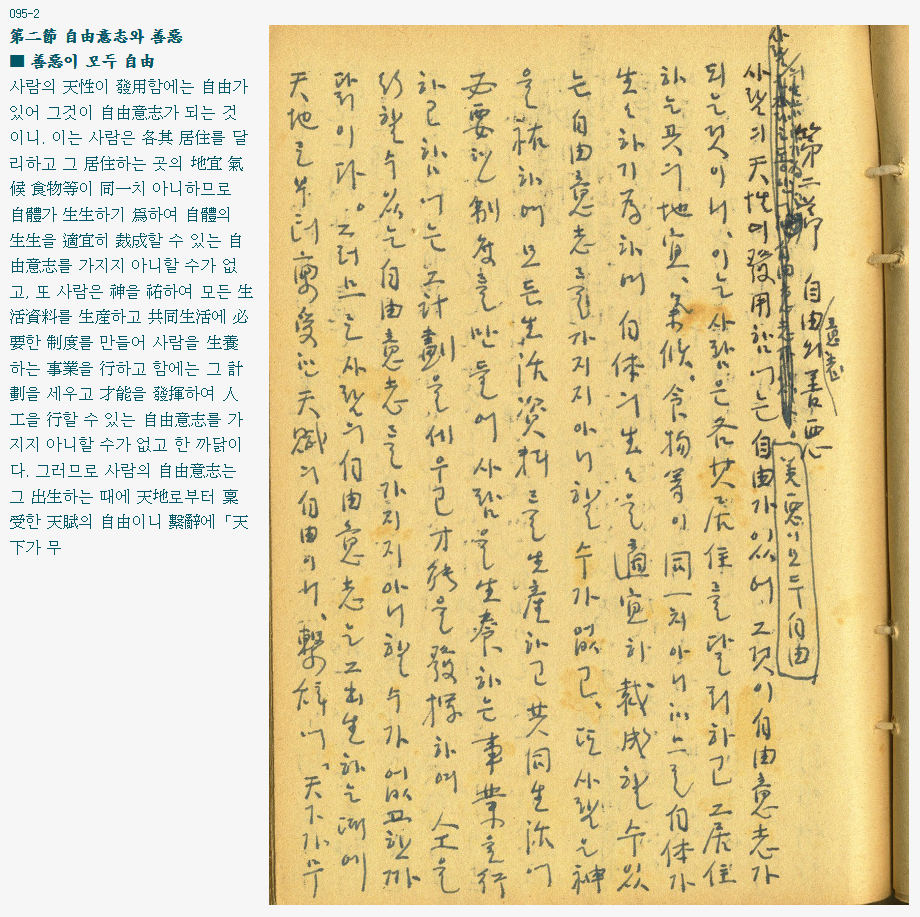 095-2
第二節 自由意志와 善惡
■ 善惡이 모두 自由
사람의 天性이 發用함에는 自由가
있어 그것이 自由意志가 되는 것
이니. 이는 사람은 各其 居住를 달
리하고 그 居住하는 곳의 地宜 氣
候 食物等이 同一치 아니하므로
自體가 生生하기 爲하여 自體의
生生을 適宜히 裁成할 수 있는 自
由意志를 가지지 아니할 수가 없
고, 또 사람은 神을 祐하여 모든 生
活資料를 生産하고 共同生活에 必
要한 制度를 만들어 사람을 生養
하는 事業을 行하고 함에는 그 計
劃을 세우고 才能을 發揮하여 人
工을 行할 수 있는 自由意志를 가
지지 아니할 수가 없고 한 까닭이
다. 그러므로 사람의 自由意志는
그 出生하는 때에 天地로부터 稟
受한 天賦의 自由이니 繫辭에「天
下가 무
第二節 自由意志의 善惡
善惡이모두自由
사람의 天性에 發用함에는 自由가 있어 그것이 自由意志가
되는것이니, 이는 사람은 各其居住를 달리하고 그居住
하는곳의 地宜、氣候、食物等이 同一치아니함으로 自体가
生々하기爲하여 自体의 生々을 適宜히 裁成할 수있
는 自由意志를가지지아니할 수가없고、또사람은神
을祐하여 모든生活資料를生産하고 共同生活에
必要한制度를만들어 사람을生養하는事業을行
하고함에는 그計劃을세우고 才能을發揮하여 人工을
行할수있는自由意志를가지지아니할수가없고한까
닭이다。그러므로사람의自由意志는그出生하는때에
天地로부터稟受한天賦의自由이니、繫辭에「天下가무